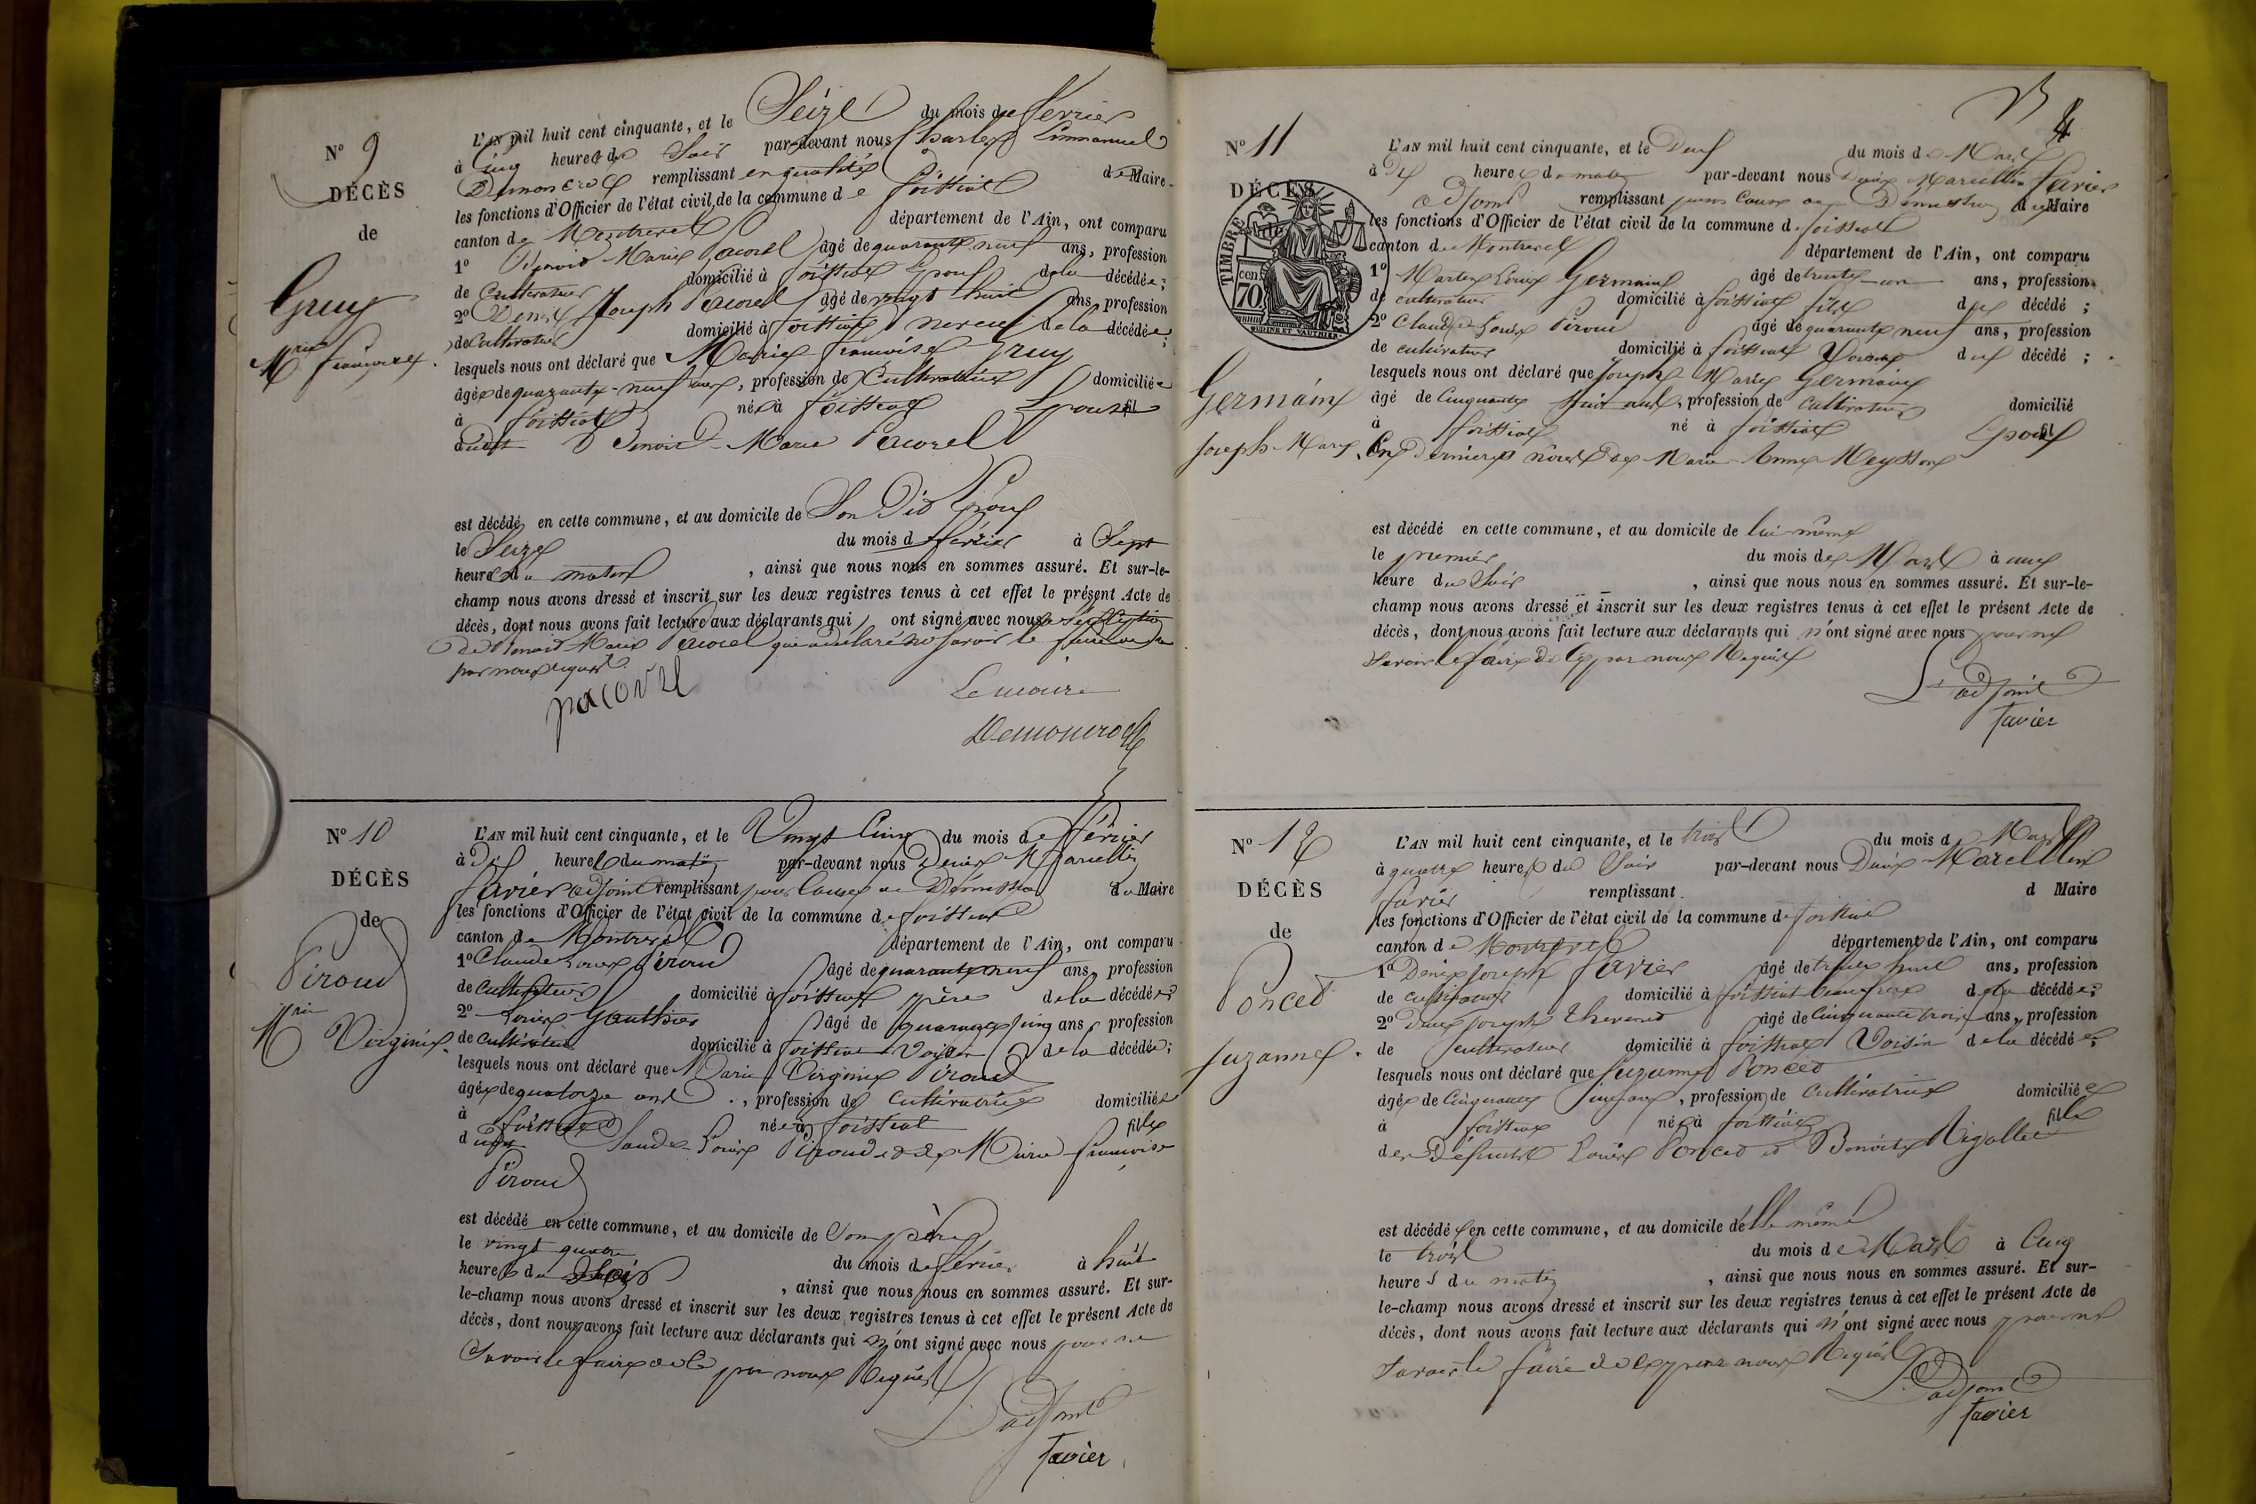 N° 9
DÉCÈS
de
Gruy
Mrie françoise
L'AN mil huit cent cinquante, et le Seize du mois de février
à Cinq heures du Soir par-devant nous Charles Emmanuel
remplissant en qualité de Maire
les fonctions d'Officier de l'état civil de la commune de foissiat
canton de Montrevel département de l'Ain, ont comparu
1° Benoit Marie Pacorel âgé de quarante neuf ans, profession
de Cultivateur domicilié à foissiat Epoux de la décédée ;
2° Denis Joseph Pacorel âgé de vingt huit ans profession
de Cultivateur domicilié à foissiat neveu de la décédée ;
lesquels nous ont déclaré que Marie françoise Gruy
âgée de quarante-neuf ans, profession de Cultivatrice domiciliée
à foissiat née à foissiat Epouse fil
dudit Benoit Marie Pacorel
est décédé en cette commune, et au domicile de Son Dit Epoux
le Seize du mois de février à Sept
heures du matin , ainsi que nous nous en sommes assuré. Et sur-le-
champ nous avons dressé et inscrit sur les deux registres tenus à cet effet le présent Acte de
décès, dont nous avons fait lecture aux déclarants qui ont signé avec nous à l'exception
de Benoit Marie Pacorel qui a déclaré ne savoir le faire de ce
par nous requis
pacorel
Le maire
N° 10
DÉCÈS
de
Piroud
Mrie Virginie
L'AN mil huit cent cinquante, et le Vingt Cinq du mois de février
à Dix heures du matin par-devant nous Denis Marcellin
favier adjoint remplissant pour Cause de Démission du Maire
les fonctions d'Officier de l'état civil de la commune de foissiat
canton de Montrevel département de l'Ain, ont comparu
1° Claude Louis Piroud âgé de quarante neuf ans profession
de Cultivateur domicilié à foissiat père de la décédée
2° Louis Gauthier âgé de quarante cinq ans profession
de Cultivateur domicilié à foissiat Voisin de la décédée ;
lesquels nous ont déclaré que Marie Virginie Piroud
âgée de quatorze ans , profession de Cultivatrice domiciliée
à foissiat née à foissiat fille
d Claude Louis Piroud et de Marie françoise
Piroud
est décédé en cette commune, et au domicile de Son père
le vingt quatre du mois de février à huit
heures du Soir , ainsi que nous nous en sommes assuré. Et sur-
le-champ nous avons dressé et inscrit sur les deux registres tenus à cet effet le présent Acte de
décès, dont nous avons fait lecture aux déclarants qui n'ont signé avec nous pour ne
Savoir le faire de Ce par nous Requis
L'adjoint
favier
4
N° 11
DÉCÈS
TIMBRE
70 cen
Germain
Joseph Marie
L'AN mil huit cent cinquante, et le Deux du mois de Mars
à Dix heures du matin par-devant nous Denis Marcellin favier
adjoint remplissant pour Cause de Démission du Maire
les fonctions d'Officier de l'état civil de la commune de foissiat
canton de Montrevel département de l'Ain, ont comparu
1° Germain âgé de trente-un ans, profession
de cultivateur domicilié à foissiat fils du décédé ;
2° Claude Louis Piroud âgé de quarante neuf ans, profession
de cultivateur domicilié à foissiat Voisin du décédé ;
lesquels nous ont déclaré que Joseph Marie Germain
âgé de Cinquante huit ans, profession de Cultivateur domicilié
à foissiat né à foissiat Epoux fil
En Dernières Noces de Marie Anne
est décédé en cette commune, et au domicile de lui même
le premier du mois de Mars à une
heure du Soir , ainsi que nous nous en sommes assuré. Et sur-le-
champ nous avons dressé et inscrit sur les deux registres tenus à cet effet le présent Acte de
décès, dont nous avons fait lecture aux déclarants qui n'ont signé avec nous pour ne
Savoir le faire de Ce par nous Requis
L'adjoint
favier
N° 12
DÉCÈS
de
Poncet
Suzanne
L'AN mil huit cent cinquante, et le trois du mois d Mars
à quatre heures du Soir par-devant nous Denis Marcellin
favier remplissant d Maire
les fonctions d'Officier de l'état civil de la commune de foissiat
canton de Montrevel département de l'Ain, ont comparu
1° Denis Joseph favier âgé de trente huit ans, profession
de cultivateur domicilié à foissiat beau frère de la décédée ;
2° Denis Joseph Thevenod âgé de Cinquante trois ans, profession
de cultivateur domicilié à foissiat Voisin de la décédée ;
lesquels nous ont déclaré que Suzanne Poncet
âgée de Cinquante ans, profession de Cultivatrice domiciliée
à foissiat née à foissiat fille
des Défunts Louis Poncet et Benoite
est décédée en cette commune, et au domicile d'elle même
le trois du mois de Mars à Cinq
heures du matin , ainsi que nous nous en sommes assuré. Et sur-
le-champ nous avons dressé et inscrit sur les deux registres tenus à cet effet le présent Acte de
décès, dont nous avons fait lecture aux déclarants qui n'ont signé avec nous pour ne
Savoir le faire de Ce par nous Requis
L'adjoint
favier